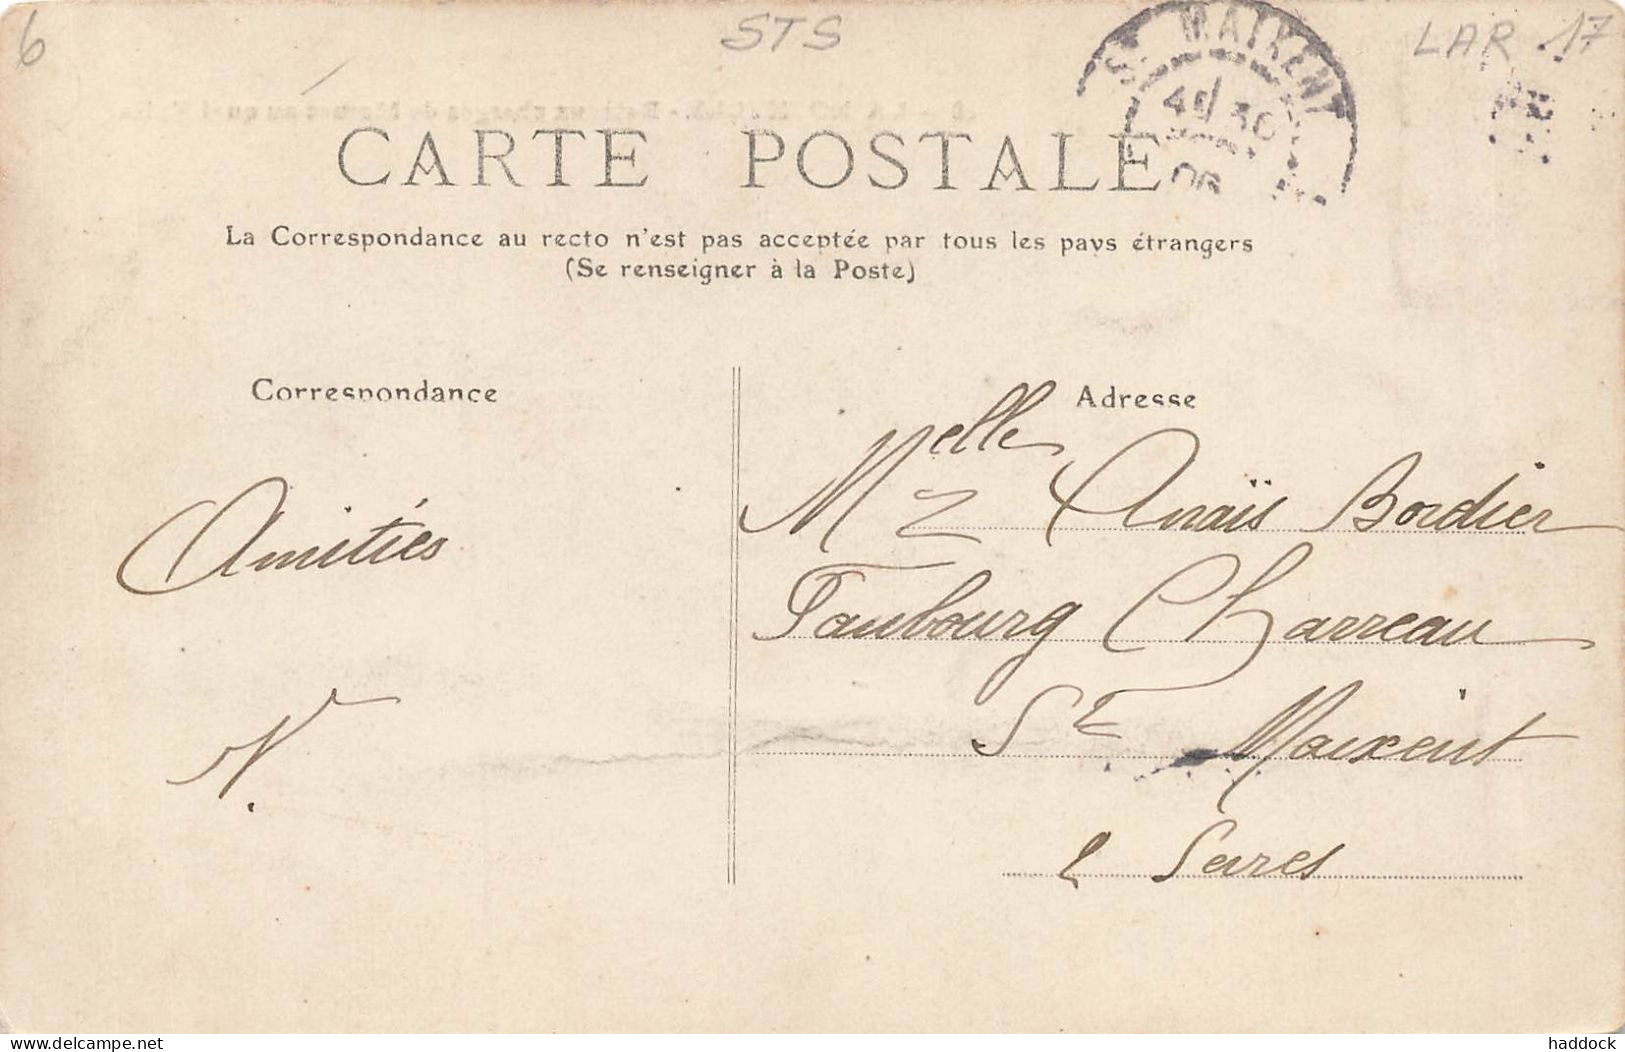 6
STS
LAR 17
ST MAIXENT
CARTE POSTALE
La Correspondance au recto n'est pas acceptée par tous les pays étrangers
(Se renseigner à la Poste)
Correspondance
Amitiés
N.
Adresse
Melle Anaïs Bordier
Faubourg Charreau
St Maixent
2 Sèvres
delcampe.net
haddock